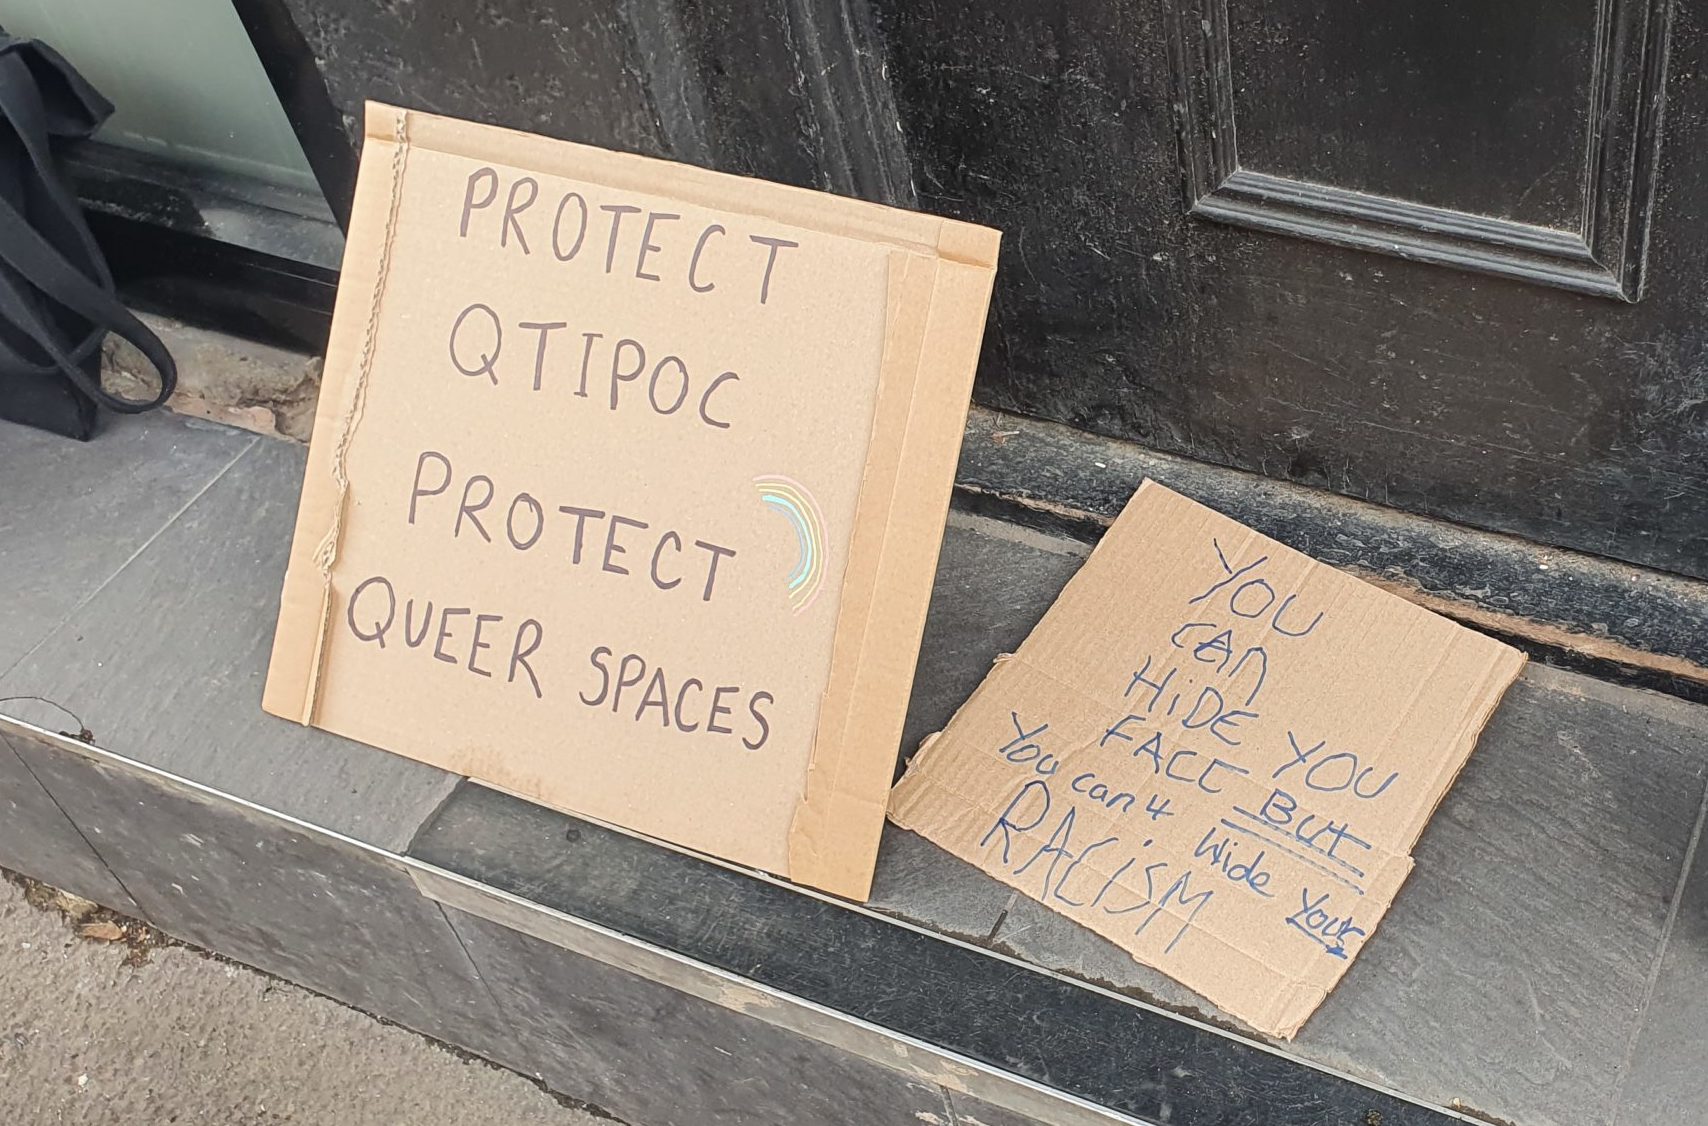 PROTECT
QTIPOC
PROTECT
QUEER SPACES
YOU
CAN
HiDE YOU
FACE BUt
You can4 Hide Yours
RACiSM